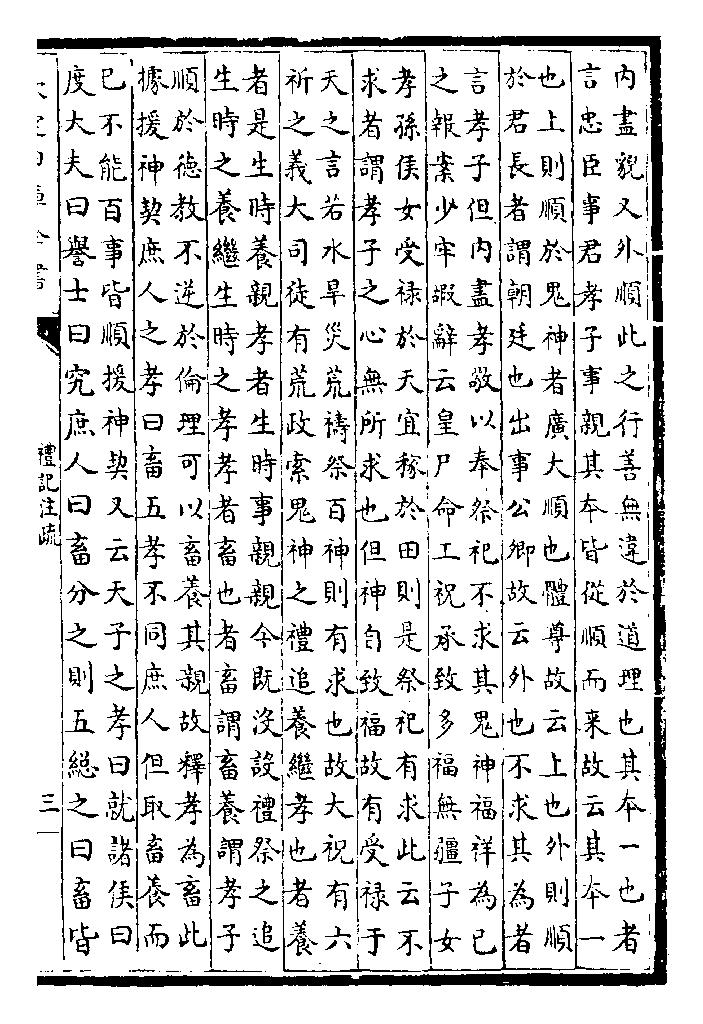 内盡貌又外順此之行善無違於道理也其本一也者
言忠臣事君孝子事親其本皆從順而来故云其本一
也上則順於鬼神者廣大順也體尊故云上也外則順
於君長者謂朝廷也出事公卿故云外也不求其為者
言孝子但内盡孝敬以奉祭祀不求其鬼神福祥為已
之報案少牢嘏辭云皇尸命工祝承致多福無疆子女
孝孫俟女受禄於天宜稼於田則是祭祀有求此云不
求者謂孝子之心無所求也但神自致福故有受禄于
天之言若水旱災荒禱祭百神則有求也故大祝有六
祈之義大司徒有荒政索鬼神之禮追養繼孝也者養
者是生時養親孝者生時事親親今既没設禮祭之追
生時之養繼生時之孝孝者畜也者畜謂畜養謂孝子
順於徳教不逆於倫理可以畜養其親故釋孝為畜此
據援神契庶人之孝曰畜五孝不同庶人但取畜養而
已不能百事皆順援神契又云天子之孝曰就諸侯曰
度大夫曰譽士曰究庶人曰畜分之則五緫之曰畜皆
欽定四庫全書
禮記注疏
三